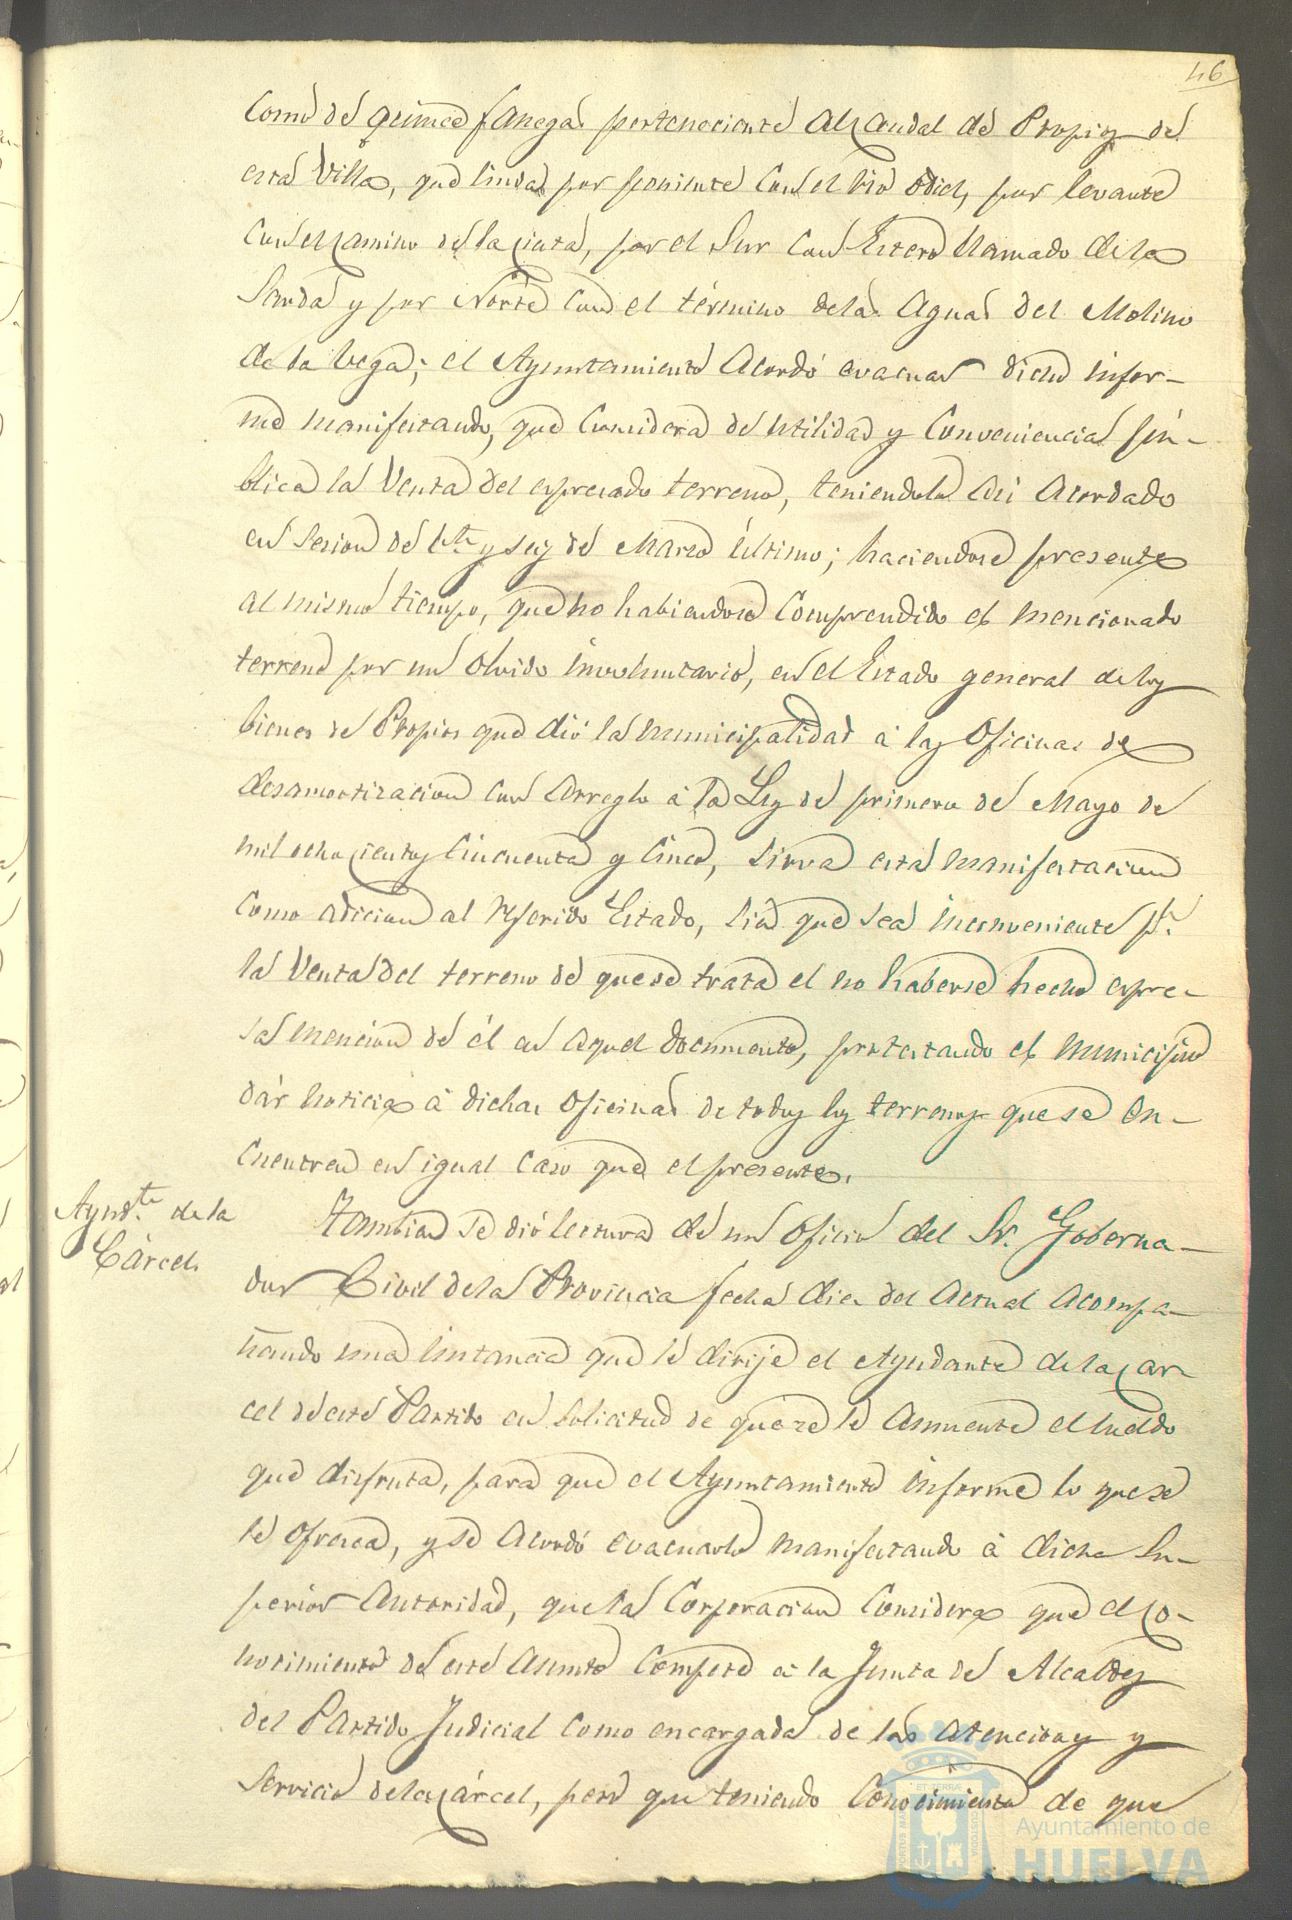 46
como de quince fanegas perteneciente al caudal de Propios de
esta Villa, que linda por poniente con el rio Odiel, por levante
con el camino de la Cinta, por el Sur con Estero llamado de la
y por Norte con el término de las Aguas del Molino
de la Vega; el Ayuntamiento Acordó evacuar dicho infor-
me manifestando, que considera de utilidad y conveniencia pú-
blica la Venta del expresado terreno, teniendolo asi Acordado
en Sesion de y seis de Marzo último; haciendose presente
al mismo tiempo, que no habiendose comprendido el mencionado
terreno por un olvido involuntario, en el Estado general de los
bienes de Propios que dió la municipalidad á las Oficinas de
desamortizacion con arreglo á la Ley de primero de Mayo de
mil ochocientos cincuenta y cinco, sirva esta manifestacion
como adicion al referido Estado, sin que sea inconveniente pa.
la Venta del terreno de que se trata el no haberse hecho expre-
sa mencion de él en aquel documento, protestando el municipio
dár noticia á dichas oficinas de todos los terrenos que se en-
cuentren en igual caso que el presente.
Ayudte. de la
Cárcel.
Tambien se dió lectura de un oficio del Sr. Goberna-
dor Civil de la Provincia fecha diez del actual acompa-
ñando una instancia que le dirije el Ayudante de la car-
cel de este Partido en solicitud de que se le aumente el sueldo
que disfruta, para que el Ayuntamiento informe lo que se
le ofrezca, y se acordó evacuarlo manifestando á dicha Su-
perior Autoridad, que la Corporacion considera que el co-
nocimiento de este asunto compete á la Junta de Alcaldes
del Partido Judicial como encargada de las atenciones y
servicio de la cárcel, pero que teniendo conocimiento de que
Ayuntamiento de
HUELVA